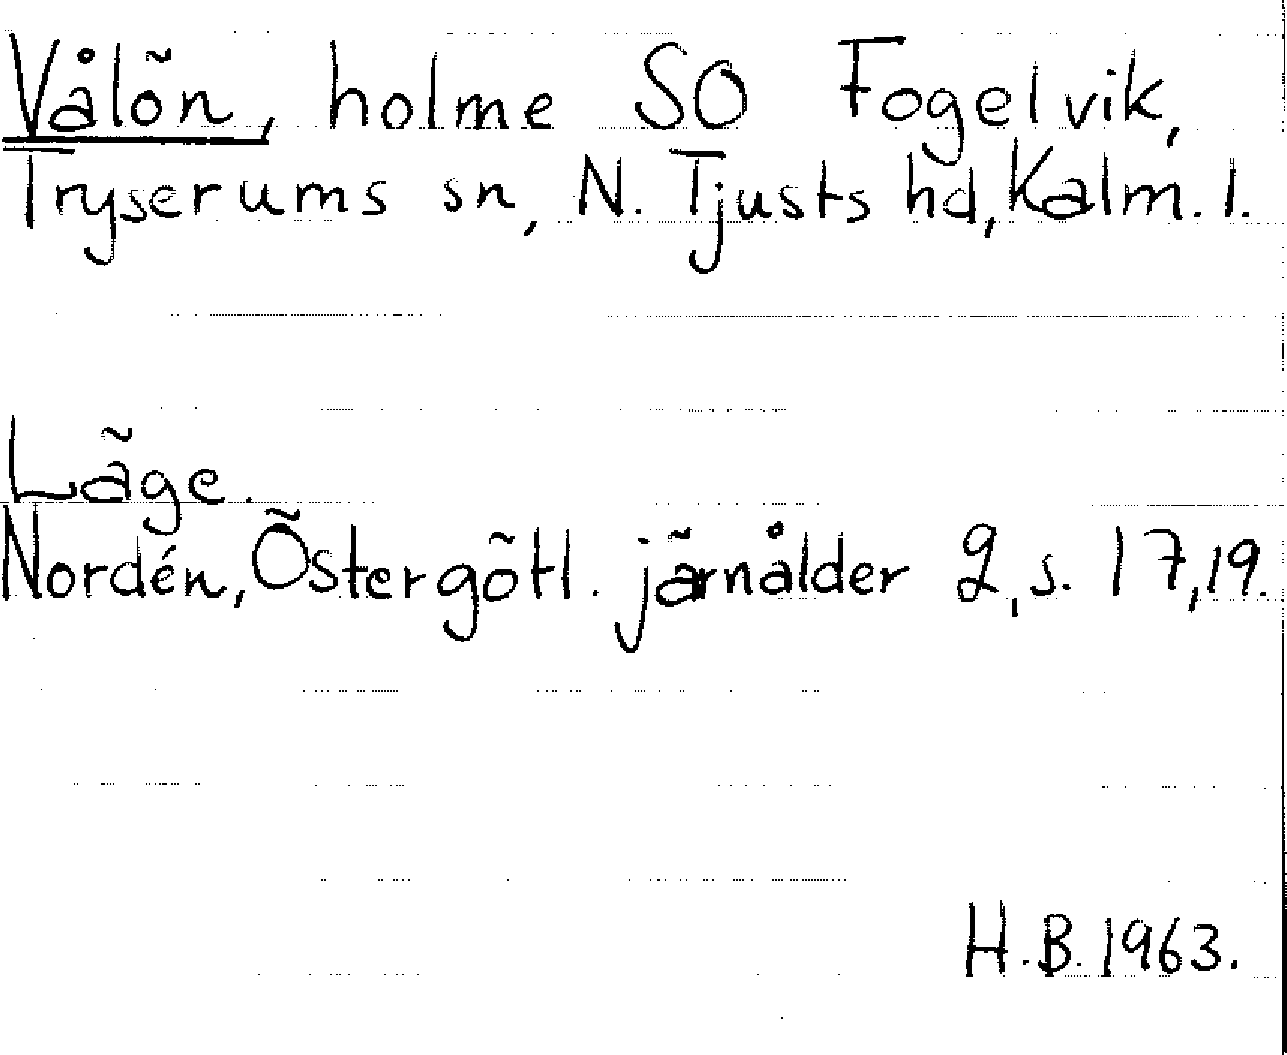 Vålön, holme SO Fogelvik,
Tryserums sn, N. Tjusts hd, Kalm. l.
Läge.
Nordén, Östergötl. järnålder 2, s. 17, 19.
H.B. 1963.